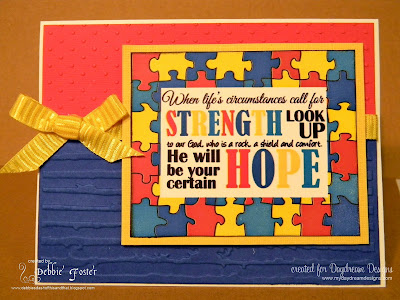 When life's circumstances call for
STRENGTH LOOK UP
to our God, who is a rock, a shield and comfort.
He will be your certain
HOPE
created by
Debbie Foster
www.debbiesdashofthisandthat.blogspot.com
created for Daydream Designs
www.mydaydreamdesigns.com